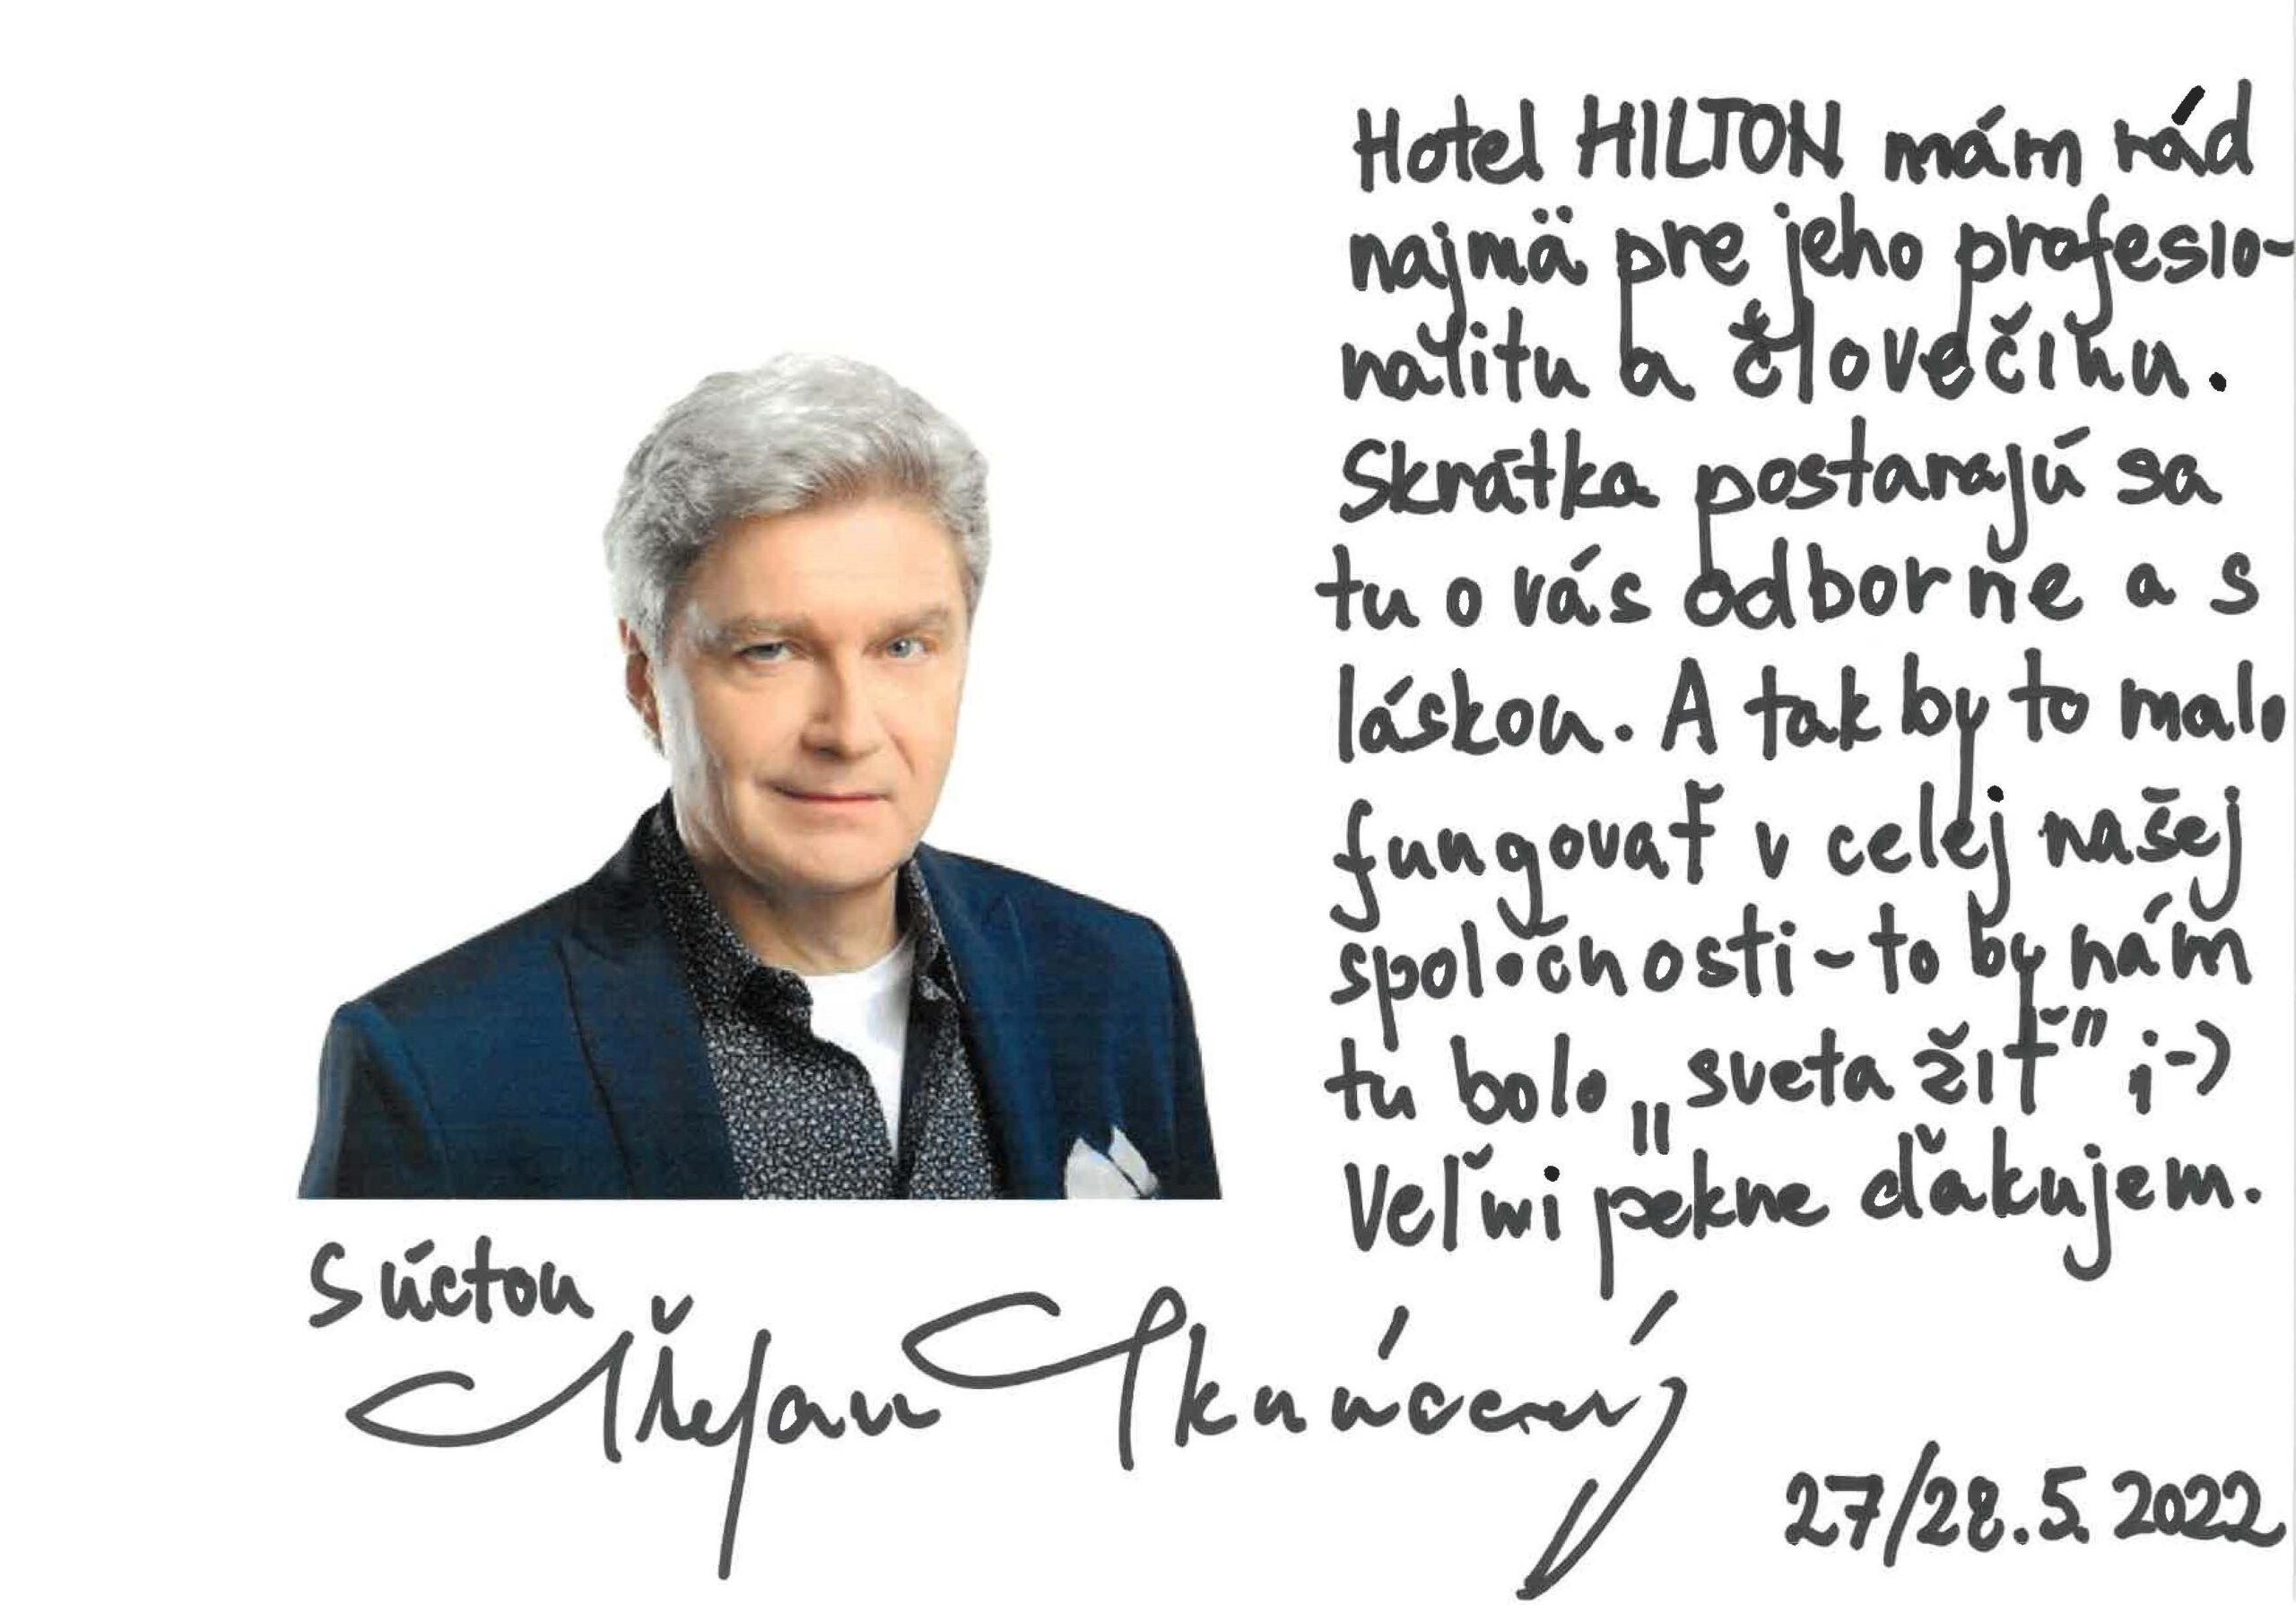 Hotel HILTON mám rád
najmä pre jeho profesio-
nalitu a človečinu.
Skrátka postarajú sa
tu o vás odborne a s
láskou. A tak by to malo
fungovať v celej našej
spoločnosti - to by nám
tu bolo „sveta žiť" ;-)
Veľmi pekne ďakujem.
S úctou
Štefan Skrúcaný
27/28.5.2022